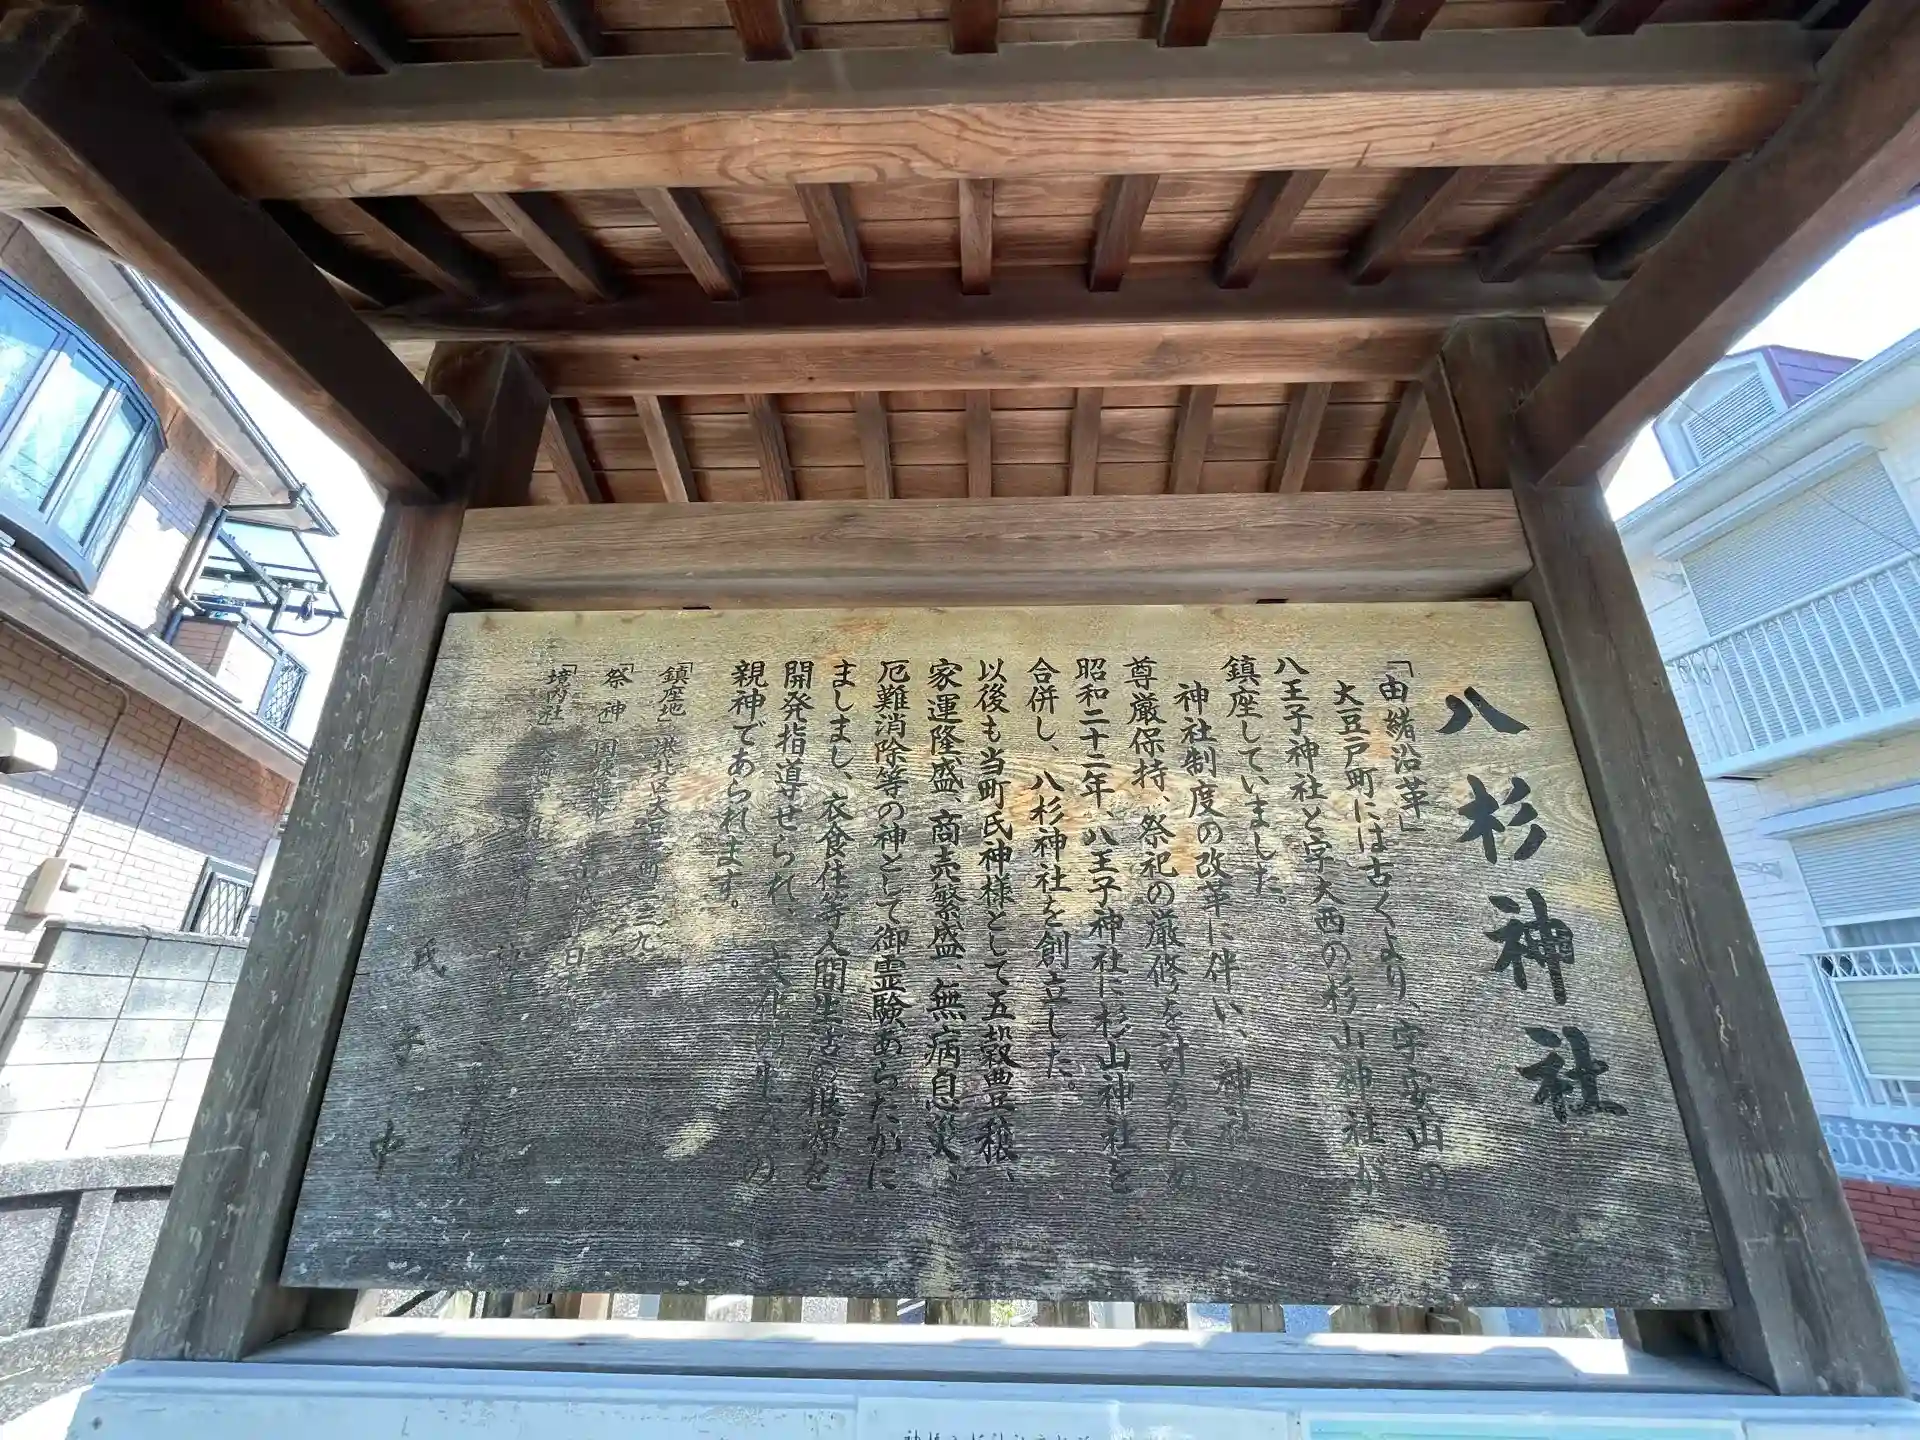 八杉神社
「由緒沿革」
大豆戸町には古くより、字安山の
八王子神社と字大西の杉山神社が
鎮座していました。
神社制度の改革に伴い、神社
尊厳保持、祭祀の厳修を計るため
昭和二十二年、八王子神社に杉山神社を
合併し、八杉神社を創立した。
以後も当町氏神様として五穀豊穣、
家運隆盛、商売繁盛、無病息災、
厄難消除等の神として御霊験あらたかに
ましまし、衣食住等人間生活の根源を
開発指導せられ、文化の生みの
親神であられます。
「鎮座地」港北区大豆戸町二三九
「祭神」
「境内社」
氏子中